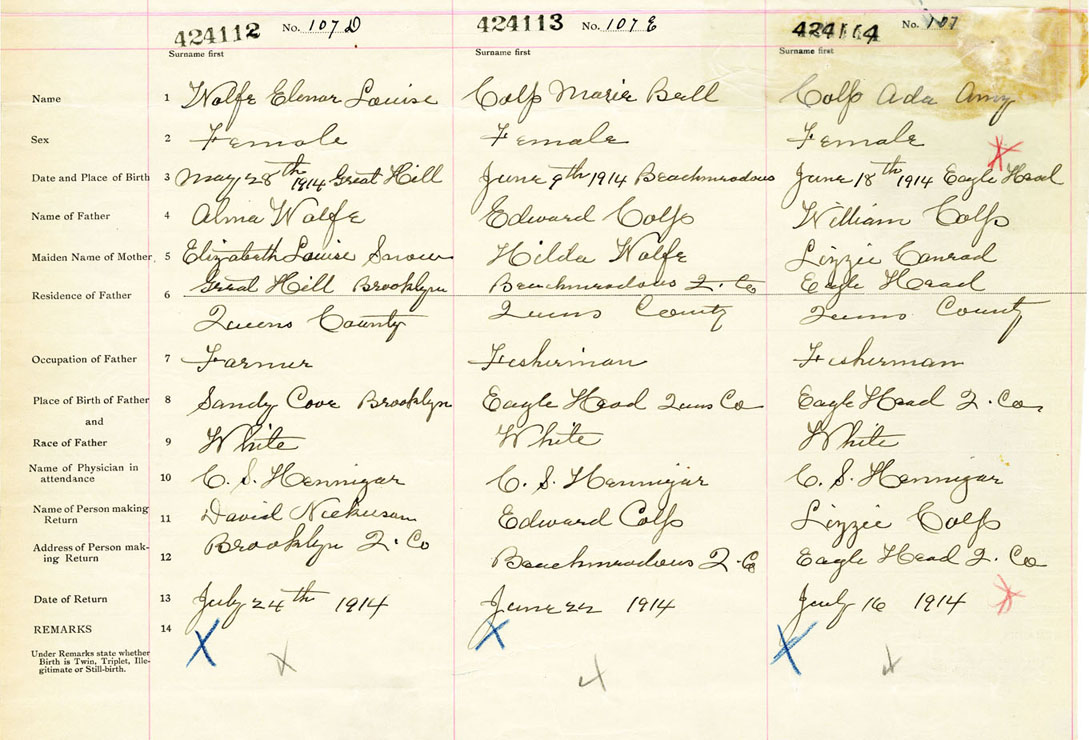 424112 No. 107 D 424113 No. 107 E 424114 No. 107
Surname first Surname first Surname first
Name 1 Wolfe Elenor Louise Colp Marie Bell Colp Ada Amy
Sex 2 Female Female Female
Date and Place of Birth 3 May 28th 1914 Great Hill June 9th 1914 Beachmeadows June 18th 1914 Eagle Head
Name of Father 4 Alma Wolfe Edward Colp William Colp
Maiden Name of Mother 5 Elizabeth Louise Snow Hilda Wolfe Lizzie Conrad
Great Hill Brooklyn Beachmeadows Q. Co Eagle Head
Residence of Father 6
Queens County Queens County Queens County
Occupation of Father 7 Farmer Fisherman Fisherman
Place of Birth of Father 8 Sandy Cove Brooklyn Eagle Head Queens Co Eagle Head Q. Co.
and
Race of Father 9 White White White
Name of Physician in
attendance 10 C. S. Hennigar C. S. Hennigar C. S. Hennigar
Name of Person making
Return 11 David Edward Colp Lizzie Colp
Address of Person mak-
ing Return 12 Brooklyn Q. Co Beachmeadows Q. Co Eagle Head Q. Co
Date of Return 13 July 24th 1914 June 22 1914 July 16 1914
REMARKS 14
Under Remarks state whether
Birth is Twin, Triplet, Ille-
gitimate or Still-birth.